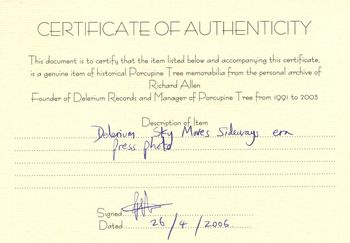 CERTIFICATE OF AUTHENTICITY
This document is to certify that the item listed below and accompanying this certificate,
is a genuine item of historical Porcupine Tree memorabilia from the personal archive of
Richard Allen
Founder of Delerium Records and Manager of Porcupine Tree from 1991 to 2003
Description of Item
Delerium Sky Moves Sideways era
Press photo
Signed
Dated 26/4/2006